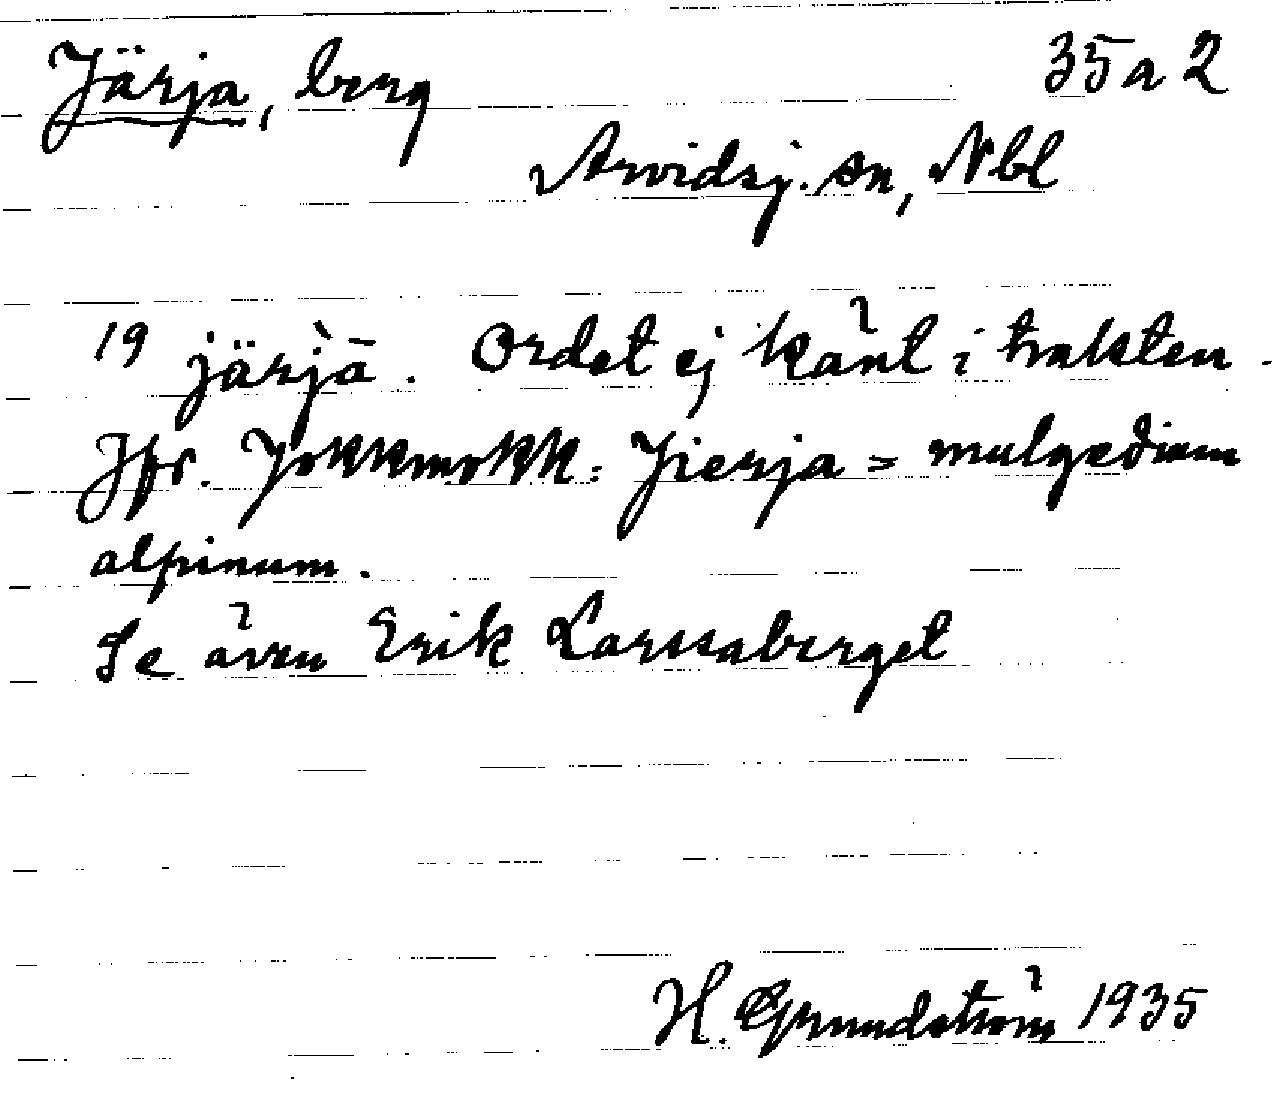 Järja, berg 35 a 2
Arvidsj. sn, Nbl
19 järjā. Ordet ej känt i trakten.
Jfr. Jokkmokk: Jierja = mulgedium
alpinum.
Se även Erik Larssaberget
H. Grundström 1935